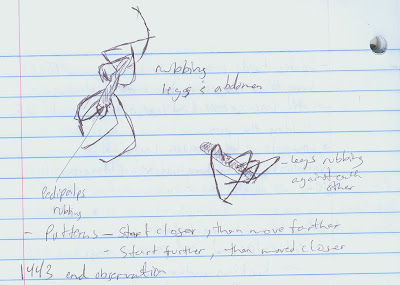 rubbing
legs & abdomen
Pedipalps
rubbing
- legs rubbing
against each
other
- Patterns - Start closer, then move farther
- Start further, then moved closer
1443 end observation